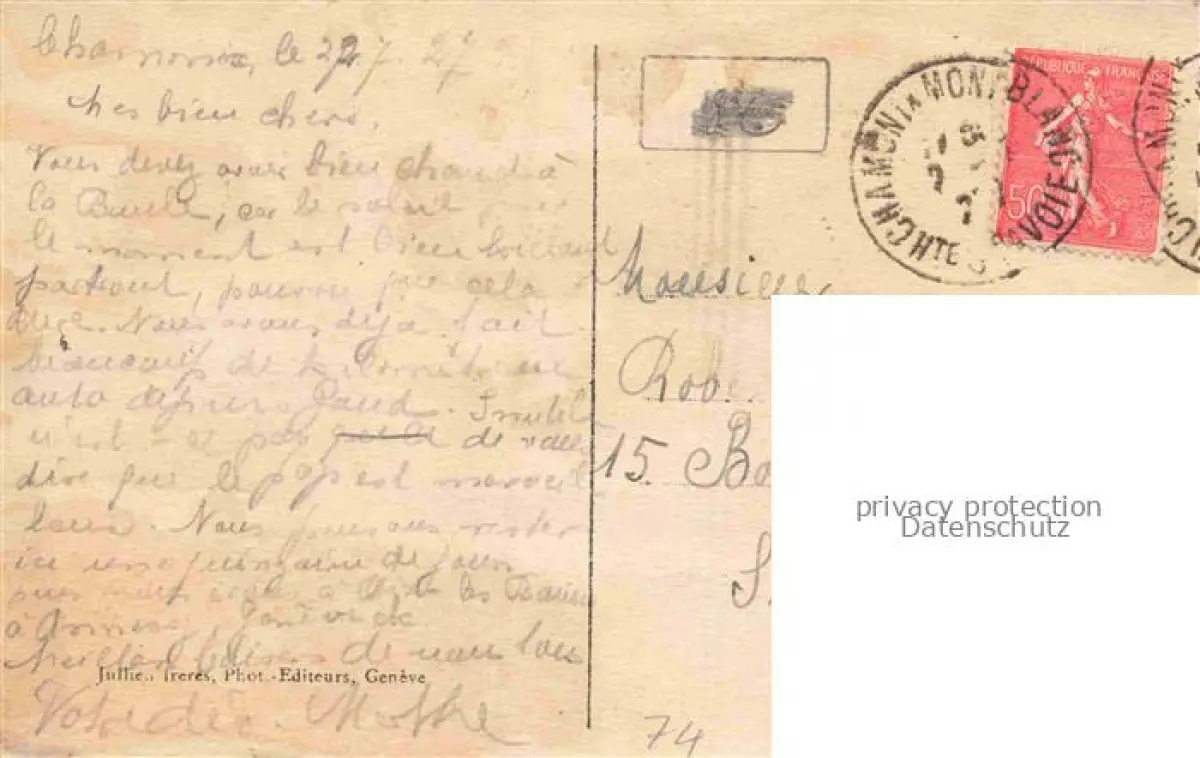 Chamonix, le 22.7.27
Mes bien chers,
Vous devez avoir bien chaud à
la Baule, car le soleil pour
le moment est bien
partout, pourvu que cela
dure. Nous avons déjà fait
beaucoup de kilomètres
auto depuis Gand. Inutile
n'est-ce pas de vous
dire que le pays est merveil
leux. Nous pensons rester
ici une quinzaine de jours
puis à Aix les Bains
à Annecy, Genève
Meilleurs baisers de nous tous
Jullien frères, Phot.-Editeurs, Genève
REPUBLIQUE FRANÇAISE
50
CHAMONIX MONT BLANC
HTE SAVOIE
Monsieur
Rob
15 Bo
S
74
privacy protection
Datenschutz